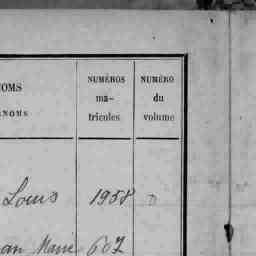 OMS
NOMS
NUMÉROS
ma-
tricules
NUMÉRO
du
volume
Louis 1958 D
an Marie 607